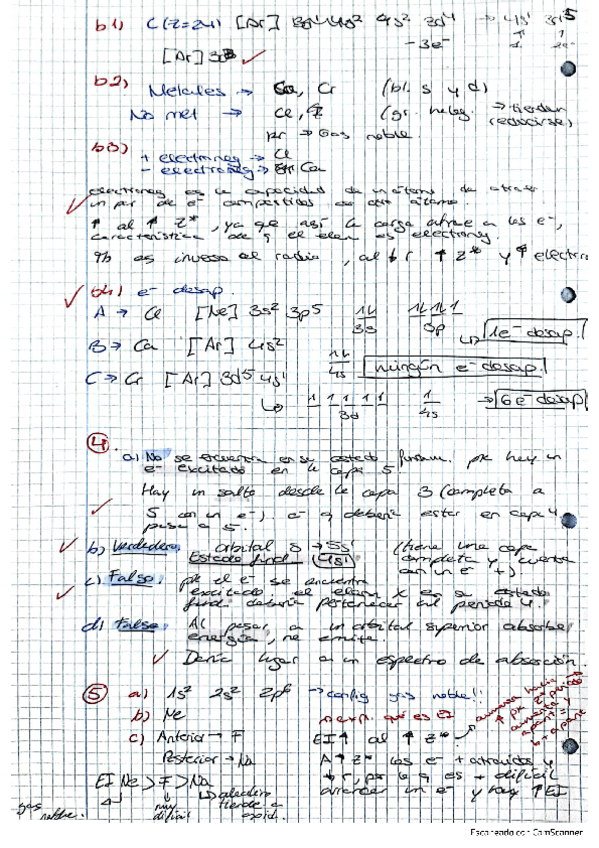 b1) C(Z=24) [Ar] 4s² 3d⁴ → 4s¹ 3d⁵
-3e⁻
[Ar] 3d³
b2) Metales → Ca, Cr (bl. s y d)
No met → Cl, (gr. halog. → tienden reducirse)
→ Gas noble.
b3) + electroneg → Cl
- electroneg → Ca
electroneg es la capacidad de un átomo de atraer
un par de e⁻ compartidos de otro átomo.
↑ al ↑ Z*, ya que así la carga atrae a los e⁻,
característica de q el elem es electroneg.
Tb es inverso al radio, al ↓ r ↑ Z* y ↑ electro
b4) e⁻ desap.
A → Cl [Ne] 3s² 3p⁵
3s 3p
1e⁻ desap.
B → Ca [Ar] 4s²
4s
ningún e⁻ desap.
C → Cr [Ar] 3d⁵ 4s¹
3d 4s
→ 6e⁻ desap
4.
a) No se encuentra en su estado fundam. pk hay un
e⁻ excitado en la capa 5
Hay un salto desde la capa 3 (completa a
5 con un e⁻). e⁻ q debería estar en capa 4
pasa a 5.
b) Verdadero, orbital s → 5s¹ (tiene una capa
Estado fund. (4s¹) completa y cuenta
con un e⁻ +)
c) Falso, pk el e⁻ se encuentra
excitado el elem X en su estado
fund. debería pertenecer al periodo 4.
d) Falso Al pasar a un orbital superior absorbe
energía, no emite.
Daría lugar a un espectro de absorción.
5 a) 1s² 2s² 2p⁶ → config gas noble!
b) Ne
qué es EI
c) Anterior → F EI ↑ al ↑ Z*
Posterior → Na A ↑ Z* los e⁻ + atraidos y
↓ r, por lo q es + difícil
arrancar un e⁻ y hay ↑ EI
EI Ne > F > Na
gas noble.
muy difícil
alcalino tiende a oxid.
Escaneado con CamScanner